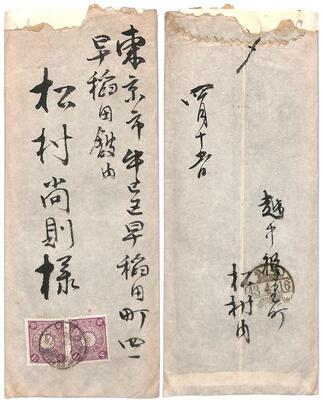 東京市牛込区早稲田町四一
早稲田館内
松村尚則様
四月十五日
越中福光町
松村内